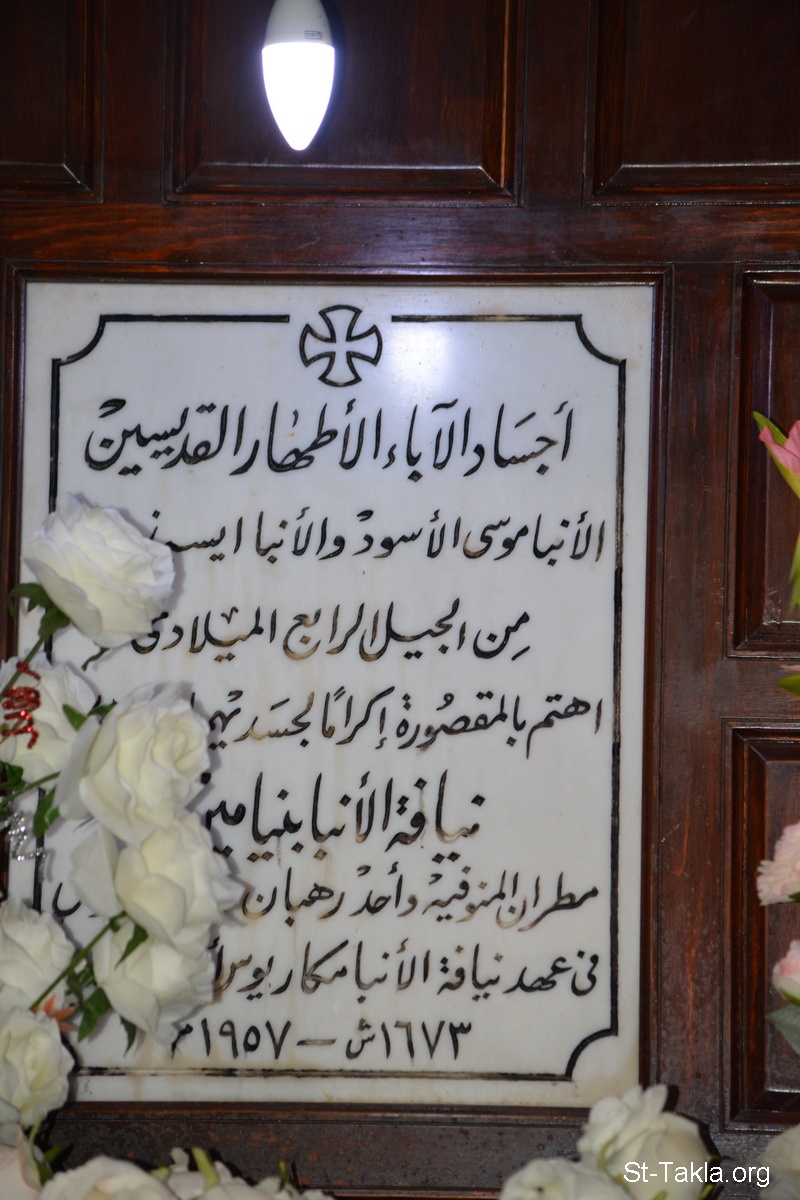 أجسَاد الآباء الأطهار القديسين
الأنبا موسى الأسود والأنبا
مِن الجيل الرابع الميلادى
اهتم بالمقصُورة إكرامًا لجسَديهما
نيافة الأنبا بنيامين
مطران المنوفية وأحد رهبان
فى عهد نيافة الأنبا مكاريوس
١٦٧٣ ش – ١٩٥٧ م
St-Takla.org